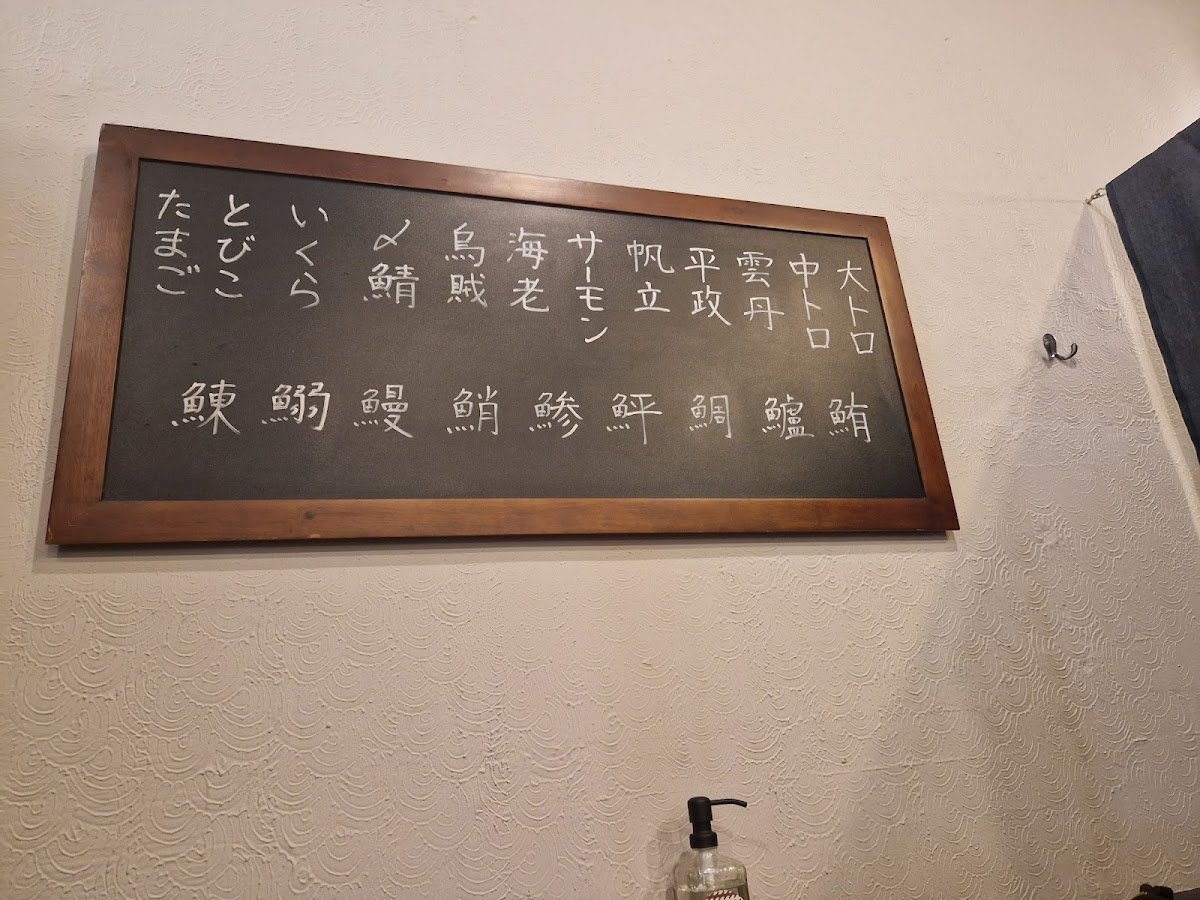 大トロ
中トロ
雲丹
平政
帆立
サーモン
海老
烏賊
〆鯖
いくら
とびこ
たまご
鮪
鱸
鯛
鮃
鯵
鮹
鰻
鰯
鯟